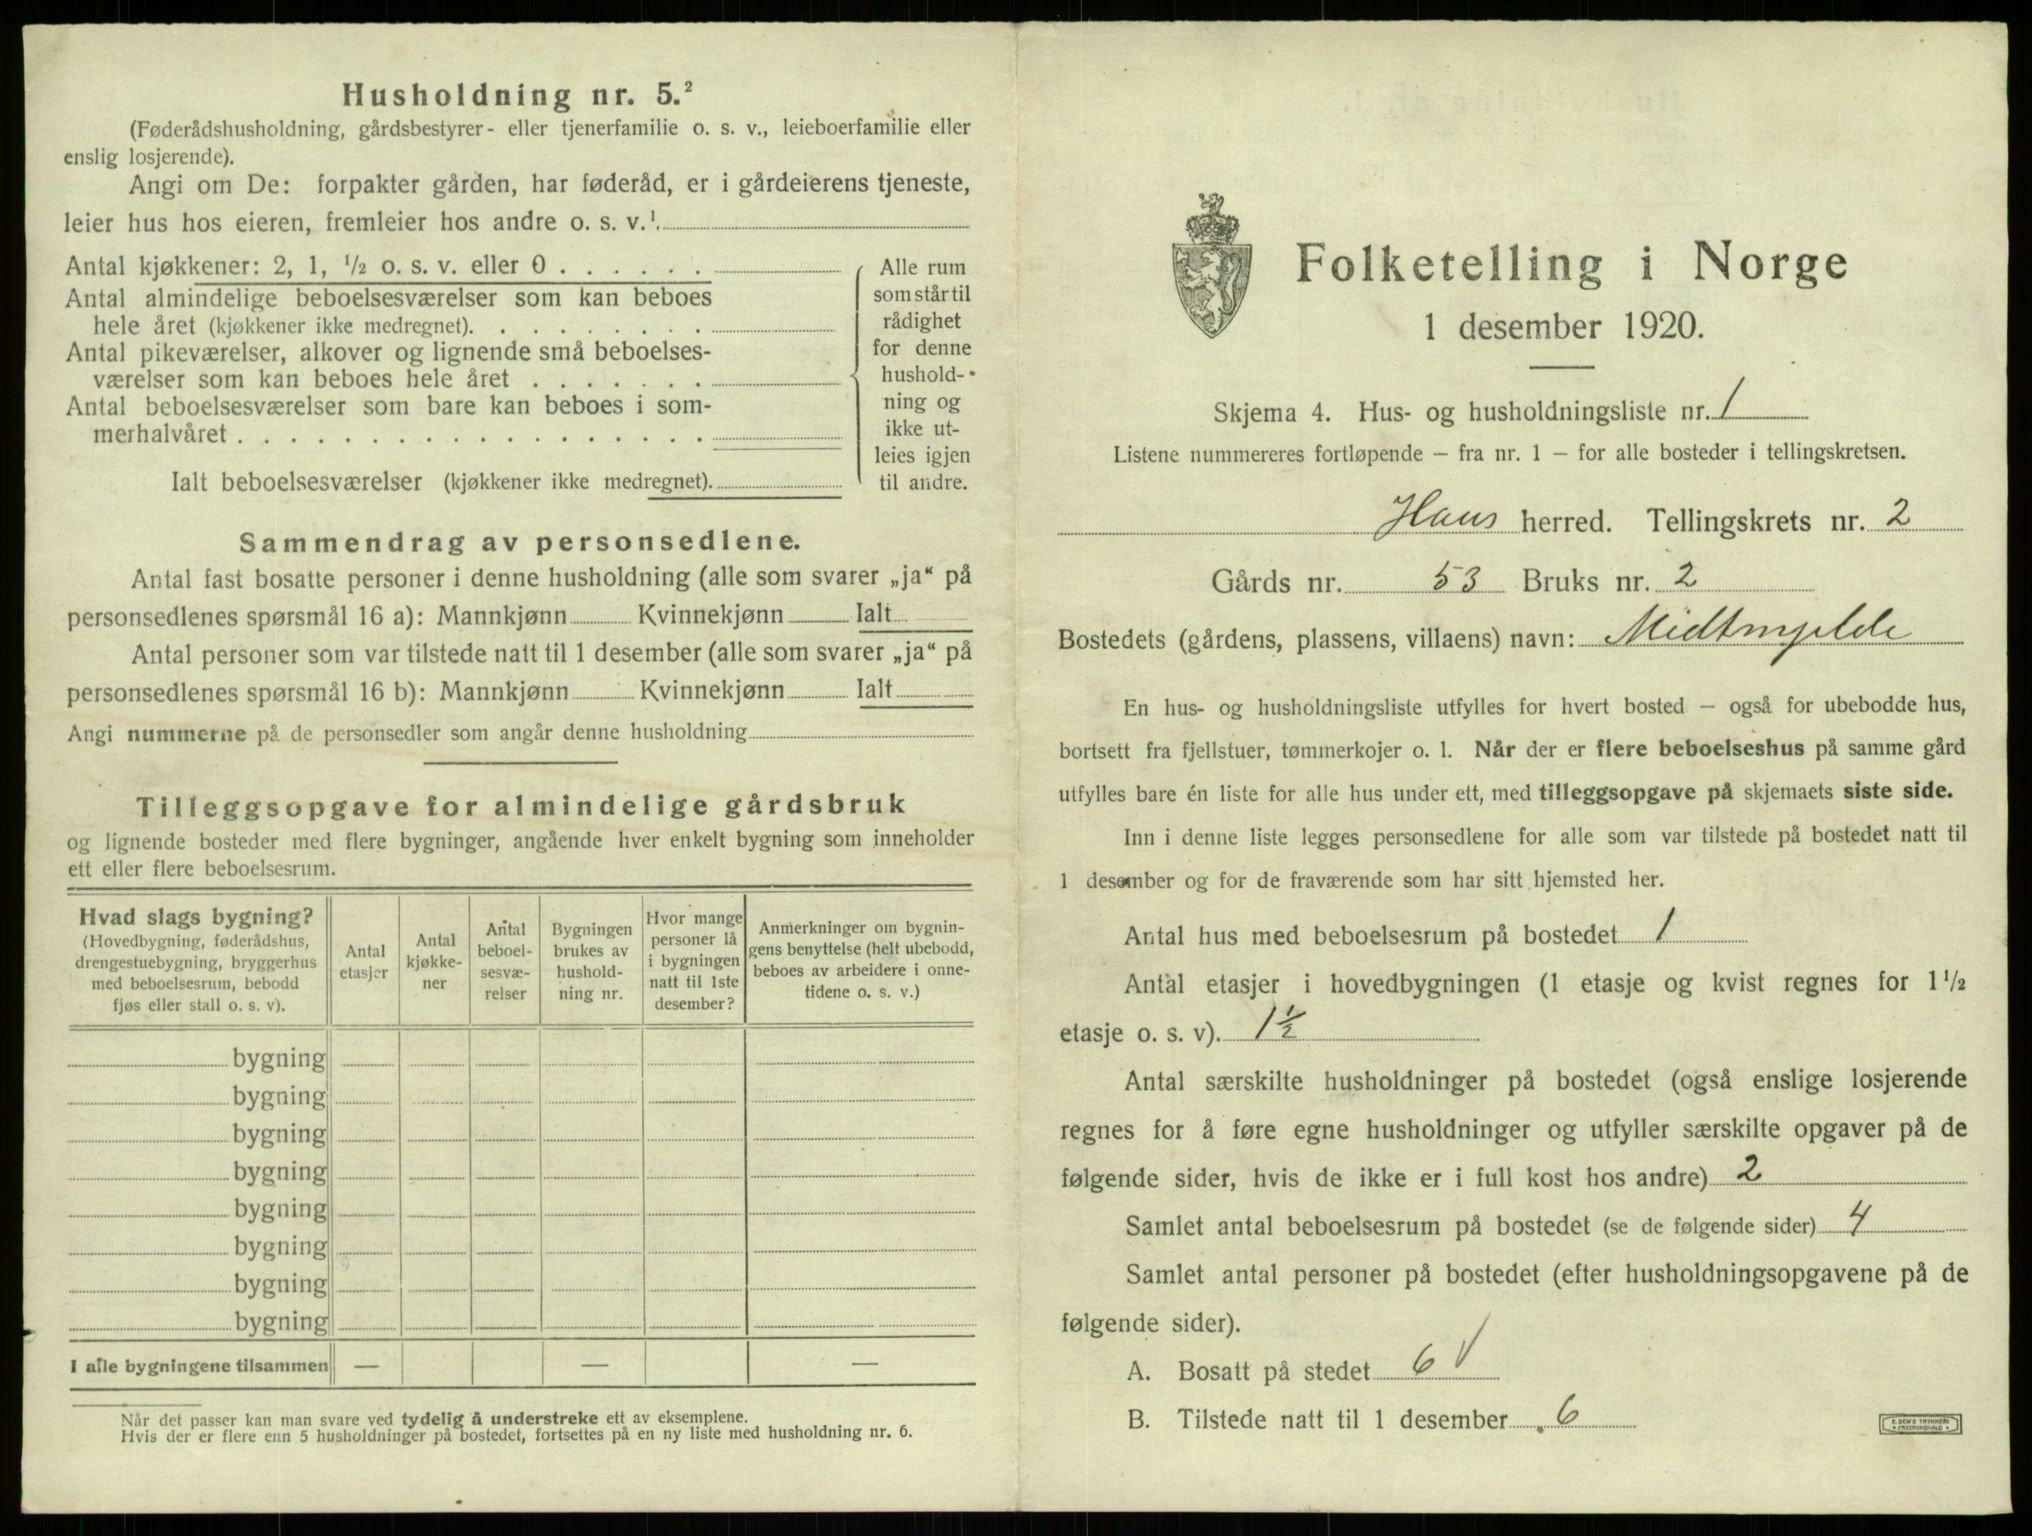 Husholdning nr. 5.²
(Føderådshusholdning, gårdsbestyrer- eller tjenerfamilie o. s. v., leieboerfamilie eller
enslig losjerende).
Angi om De: forpakter gården, har føderåd, er i gårdeierens tjeneste,
leier hus hos eieren, fremleier hos andre o. s. v.¹
Antal kjøkkener: 2, 1, ½ o. s. v. eller 0
Antal almindelige beboelsesværelser som kan beboes
hele året (kjøkkener ikke medregnet).
Antal pikeværelser, alkover og lignende små beboelses-
værelser som kan beboes hele året
Antal beboelsesværelser som bare kan beboes i som-
merhalvåret
Ialt beboelsesværelser (kjøkkener ikke medregnet).
Alle rum
som står til
rådighet
for denne
hushold-
ning og
ikke ut-
leies igjen
til andre.
Sammendrag av personsedlene.
Antal fast bosatte personer i denne husholdning (alle som svarer „ja“ på
personsedlenes spørsmål 16 a): Mannkjønn Kvinnekjønn Ialt
Antal personer som var tilstede natt til 1 desember (alle som svarer „ja“ på
personsedlenes spørsmål 16 b): Mannkjønn Kvinnekjønn Ialt
Angi nummerne på de personsedler som angår denne husholdning
Tilleggsopgave for almindelige gårdsbruk
og lignende bosteder med flere bygninger, angående hver enkelt bygning som inneholder
ett eller flere beboelsesrum.
Hvad slags bygning?
(Hovedbygning, føderådshus,
drengestuebygning, bryggerhus
med beboelsesrum, bebodd
fjøs eller stall o. s. v).
Antal
etasjer
Antal
kjøkke-
ner
Antal
beboel-
sesvæ-
relser
Bygningen
brukes av
hushold-
ning nr.
Hvor mange
personer lå
i bygningen
natt til 1ste
desember?
Anmerkninger om bygnin-
gens benyttelse (helt ubebodd,
beboes av arbeidere i onne-
tidene o. s. v.)
bygning
bygning
bygning
bygning
bygning
bygning
bygning
bygning
I alle bygningene tilsammen — — —
Når det passer kan man svare ved tydelig å understreke ett av eksemplene.
Hvis der er flere enn 5 husholdninger på bostedet, fortsettes på en ny liste med husholdning nr. 6.
Folketelling i Norge
1 desember 1920.
Skjema 4. Hus- og husholdningsliste nr. 1
Listene nummereres fortløpende – fra nr. 1 – for alle bosteder i tellingskretsen.
Haus herred. Tellingskrets nr. 2
Gårds nr. 53 Bruks nr. 2
Bostedets (gårdens, plassens, villaens) navn: Midtmjelde
En hus- og husholdningsliste utfylles for hvert bosted – også for ubebodde hus,
bortsett fra fjellstuer, tømmerkojer o. l. Når der er flere beboelseshus på samme gård
utfylles bare én liste for alle hus under ett, med tilleggsopgave på skjemaets siste side.
Inn i denne liste legges personsedlene for alle som var tilstede på bostedet natt til
1 desember og for de fraværende som har sitt hjemsted her.
Antal hus med beboelsesrum på bostedet 1
Antal etasjer i hovedbygningen (1 etasje og kvist regnes for 1½
etasje o. s. v). 1½
Antal særskilte husholdninger på bostedet (også enslige losjerende
regnes for å føre egne husholdninger og utfyller særskilte opgaver på de
følgende sider, hvis de ikke er i full kost hos andre) 2
Samlet antal beboelsesrum på bostedet (se de følgende sider) 4
Samlet antal personer på bostedet (efter husholdningsopgavene på de
følgende sider).
A. Bosatt på stedet 6 √
B. Tilstede natt til 1 desember 6